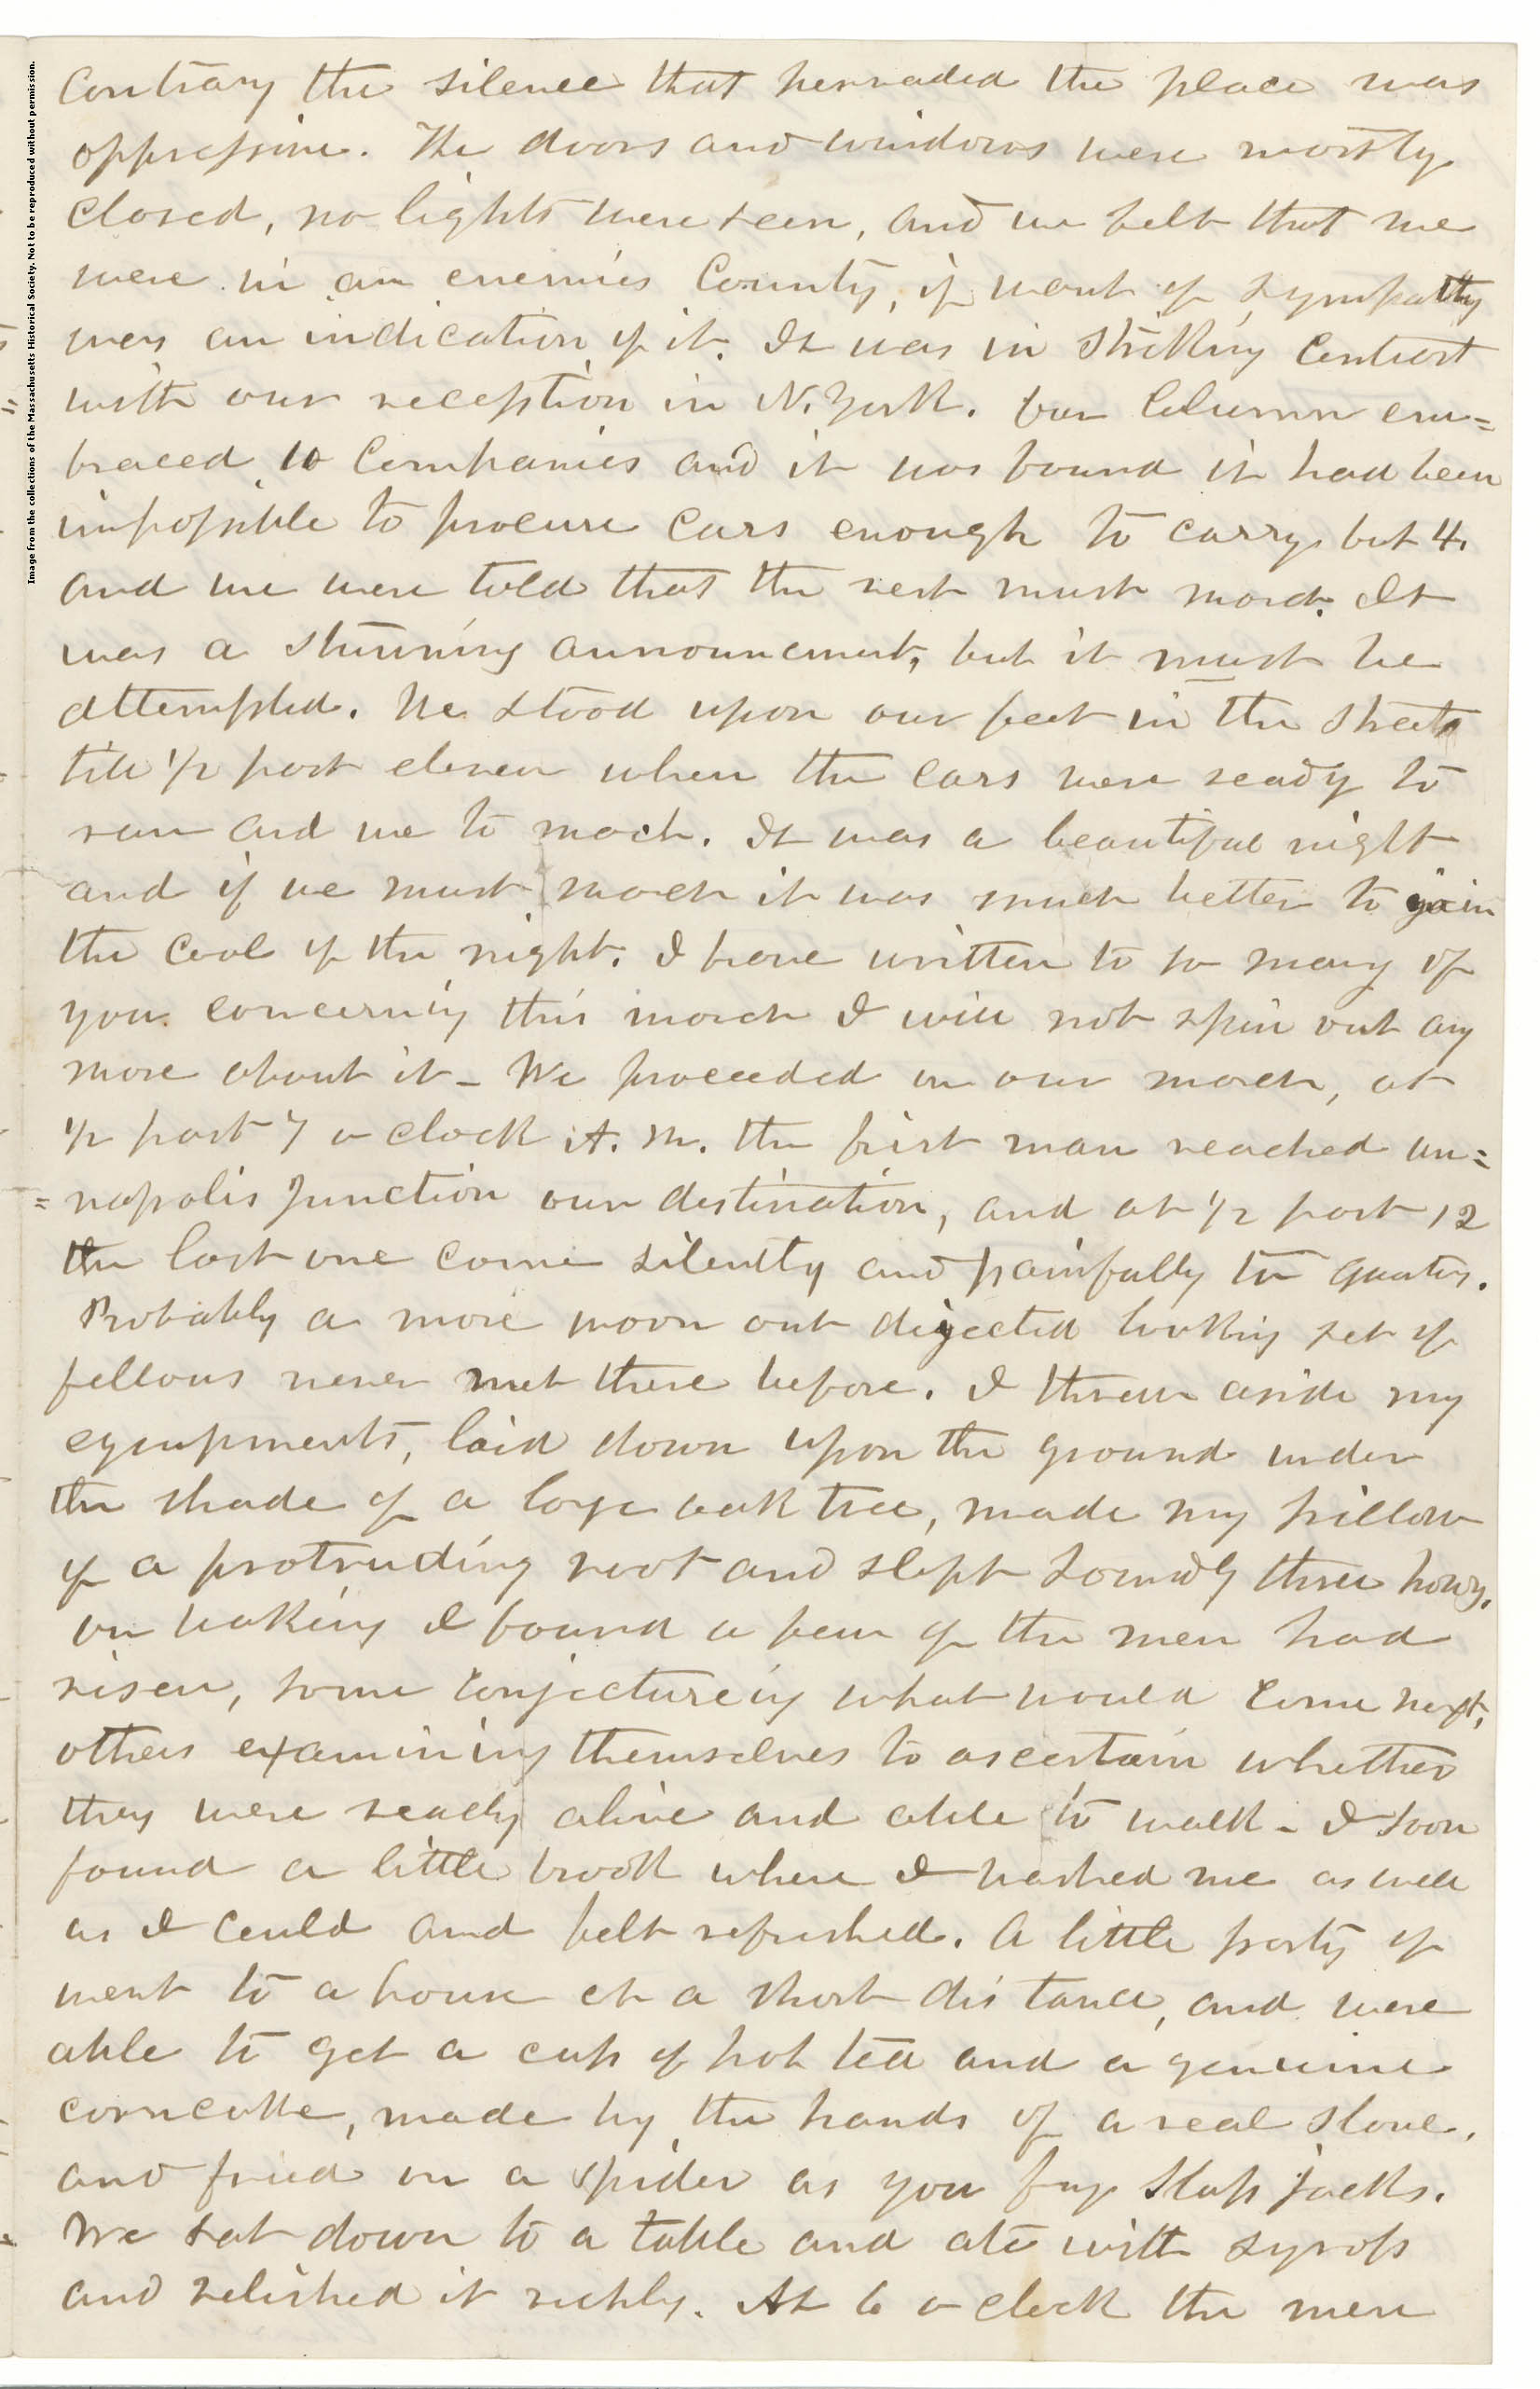 Image from the collections of the Massachusetts Historical Society. Not to be reproduced without permission.
Contrary the silence that pervaded the place was
oppressive. The doors and windows were mostly
closed, no lights were seen, and we felt that we
were in an enemies County, if want of sympathy
was an indication of it. It was in striking contrast
with our reception in N. York. Our Column em=
braced 10 Companies and it was found it had been
impossible to procure Cars enough to carry but 4.
and we were told that the rest must march. It
was a stunning announcement, but it must be
attempted. We stood upon our feet in the streets
till 1/2 past eleven when the cars were ready to
run and we to march. It was a beautiful night
and if we must march it was much better to gain
the cool of the night. I have written to so many of
you concerning this march I will not spin out any
more about it - We proceeded on our march, at
1/2 past 7 o clock A. M. the first man reached An=
=napolis Junction our destination, and at 1/2 past 12
the last one came silently and painfully to quarters.
Probably a more worn out dejected looking set of
fellows never met there before. I threw aside my
equipments, laid down upon the ground under
the shade of a large oak tree, made my pillow
of a protruding root and slept soundly three hours.
On waking I found a few of the men had
risen, some conjectureing what would come next,
others examining themselves to ascertain whether
they were really alive and able to walk - I soon
found a little brook where I washed me as well
as I could and felt refreshed. A little party of
went to a house at a short distance, and were
able to get a cup of hot tea and a genuine
corncake, made by the hands of a real slave.
and fried on a spider as you fry slap jacks.
We sat down to a table and ate with syrop
and relished it richly. At 6 o clock the men